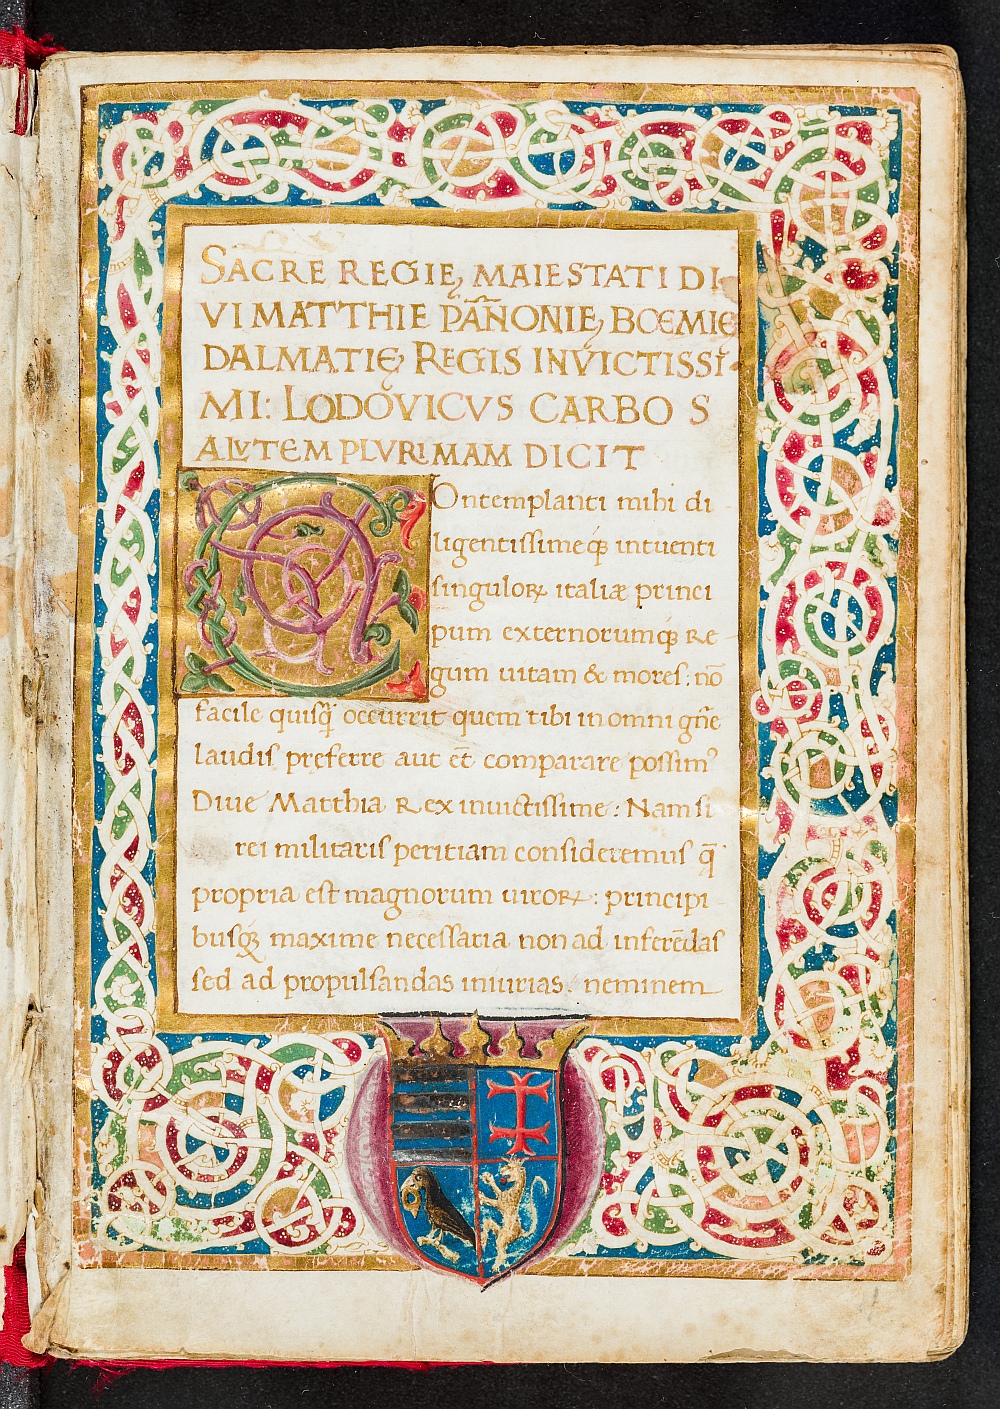 SACRE REGIĘ MAIESTATI DI
VI MATTHIE PAÑONIĘ BOEMIĘ
DALMATIĘ REGIS INVICTISSI
MI: LODOVICVS CARBO S
ALVTEM PLVRIMAM DICIT
COntemplanti mihi di
ligentissimeq́ꝫ intuenti
singuloꝝ italiæ princi
pum externorumq́ꝫ Re
gum uitam & mores: nō
facile quisq̄ occurrit quem tibi in omni gñe
laudis pręferre aut ēt comparare possimꝰ
Diue Matthia Rex inuictissime: Nam si
rei militaris peritiam consideremus q̄
propria est magnorum uiroꝝ: principi
busq́ꝫ maxime necessaria non ad inferēdas
sed ad propulsandas iniurias: neminem